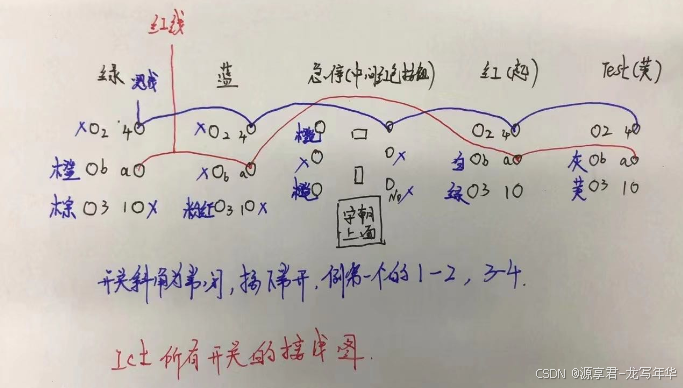 红线
绿 黑线 蓝 急停(中间红色按钮) 红(起) Test(黄)
X O2 4O X O2 4O 橙O O O2 4O O2 4O
橙 Ob aO X Ob aO XO OX 白 Ob aO 灰 Ob aO
棕 O3 1OX 粉红 O3 1OX 橙O O No X 绿 O3 1O 黄 O3 1O
字朝
上面
开关斜角为常闭,按下常开,例第一个的1-2,3-4.
Ict 所有开关的接线图.
CSDN @源享君-龙写年华